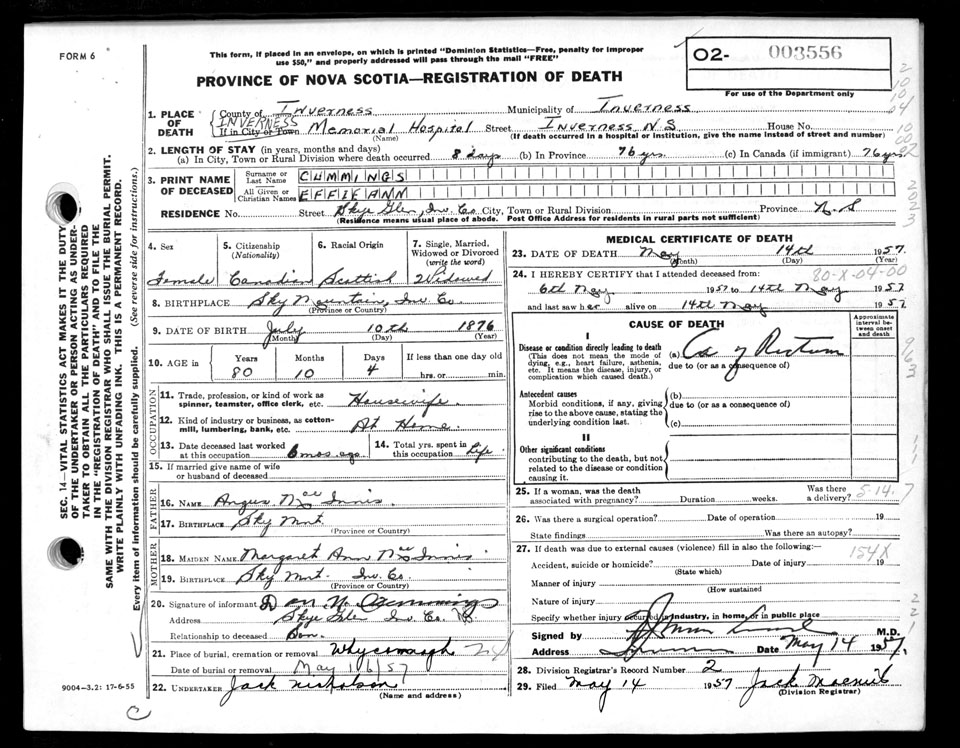 FORM 6
This form, if placed in an envelope, on which is printed "Dominion Statistics—Free, penalty for improper
use $50," and properly addressed will pass through the mail "FREE"
PROVINCE OF NOVA SCOTIA—REGISTRATION OF DEATH
O2- 003556
For use of the Department only
SEC. 14—VITAL STATISTICS ACT MAKES IT THE DUTY
OF THE UNDERTAKER OR PERSON ACTING AS UNDER-
TAKER TO OBTAIN ALL THE PARTICULARS REQUIRED
IN THE "REGISTRATION OF DEATH" AND TO FILE THE
SAME WITH THE DIVISION REGISTRAR WHO SHALL ISSUE THE BURIAL PERMIT.
WRITE PLAINLY WITH UNFADING INK. THIS IS A PERMANENT RECORD.
Every item of information should be carefully supplied. (See reverse side for instructions.)
1. PLACE OF DEATH
County of Inverness Municipality of Inverness
INVERNESS
If in City or Town Memorial Hospital Street Inverness N S House No.
(Name) (If death occurred in a hospital or institution, give the name instead of street and number)
2. LENGTH OF STAY (in years, months and days)
(a) In City, Town or Rural Division where death occurred 8 days (b) In Province 76 yrs. (c) In Canada (if immigrant) 76 yrs.
3. PRINT NAME OF DECEASED
Surname or Last Name CUMMINGS
All Given or Christian Names EFFIE ANN
RESIDENCE No. Street Skye Glen, Inv. Co City, Town or Rural Division Province N. S
(Residence means usual place of abode. Post Office Address for residents in rural parts not sufficient)
4. Sex Female
5. Citizenship (Nationality) Canadian
6. Racial Origin Scottish
7. Single, Married, Widowed or Divorced (write the word) Widowed
8. BIRTHPLACE Sky Mountain, Inv. Co.
(Province or Country)
9. DATE OF BIRTH July 10th 1876
(Month) (Day) (Year)
10. AGE in Years Months Days If less than one day old
80 10 4 hrs. or min.
OCCUPATION
11. Trade, profession, or kind of work as
spinner, teamster, office clerk, etc. Housewife.
12. Kind of industry or business, as cotton-
mill, lumbering, bank, etc. At Home.
13. Date deceased last worked
at this occupation 6 mos. ago
14. Total yrs. spent in
this occupation Life
15. If married give name of wife
or husband of deceased
FATHER
16. NAME Angus MacInnis
17. BIRTHPLACE Sky Mnt.
(Province or Country)
MOTHER
18. MAIDEN NAME Margaret Ann MacInnis
19. BIRTHPLACE Sky Mnt. Inv. Co.
(Province or Country)
20. Signature of informant Cummings
Address Skye Glen Inv. Co. N.S.
Relationship to deceased Son.
21. Place of burial, cremation or removal Whycocomagh N.S
Date of burial or removal May 16/57
22. UNDERTAKER Jack Nicholson
(Name and address)
9004-3.2: 17-6-55
MEDICAL CERTIFICATE OF DEATH
23. DATE OF DEATH May 14th 1957.
(Month) (Day) (Year)
24. I HEREBY CERTIFY that I attended deceased from:
20-X-04-00
6th May 1957 to 14th May 1957
and last saw her alive on 14th May 1957
CAUSE OF DEATH
Approximate interval between onset and death
I
Disease or condition directly leading to death (a) Ca of Rectum
(This does not mean the mode of dying, e.g., heart failure, asthenia, etc. It means the disease, injury, or complication which caused death.)
due to (or as a consequence of)
Antecedent causes
Morbid conditions, if any, giving rise to the above cause, stating the underlying condition last.
(b)
due to (or as a consequence of)
(c)
II
Other significant conditions
contributing to the death, but not related to the disease or condition causing it.
25. If a woman, was the death associated with pregnancy? Duration weeks. Was there a delivery?
5-14.7
26. Was there a surgical operation? Date of operation 19
State findings Was there an autopsy?
27. If death was due to external causes (violence) fill in also the following:—
154X
Accident, suicide or homicide? Date of injury 19
(State which)
Manner of injury
(How sustained
Nature of injury
Specify whether injury occurred in industry, in home, or in public place
Signed by M.D.
Address Date May 14 1957
28. Division Registrar's Record Number 2
29. Filed May 14 1957 Jack
(Division Registrar)